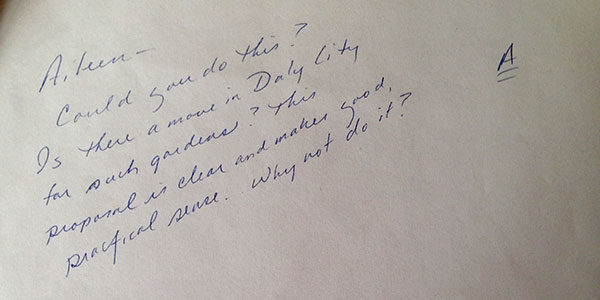 Aileen —
Could you do this?
Is there a move in Daly City
for such gardens? This
proposal is clear and makes good,
practical sense. Why not do it?
A